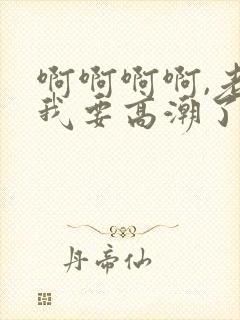 啊啊啊啊,老
我要高潮了
丹帝仙